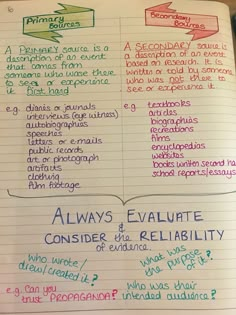 Primary
Sources
A PRIMARY source is a
description of an event
that comes from
someone who was there
to see or experience
it first hand
e.g. diaries or journals
interviews (eye witness)
autobiographies
speeches
letters or e-mails
public records
art or photograph
artifacts
clothing
film footage
Secondary
Sources
A SECONDARY source is
a description of an event
based on research. It is
written or told by someone
who was not there to
see or experience it
e.g. textbooks
articles
biographies
recreations
films
encyclopedias
websites
books written second hand
school reports/essays
ALWAYS EVALUATE
&
CONSIDER the RELIABILITY
of evidence.
Who wrote/
drew/created it?
What was
the purpose
of it?
e.g. Can you
trust PROPAGANDA?
Who was their
intended audience?